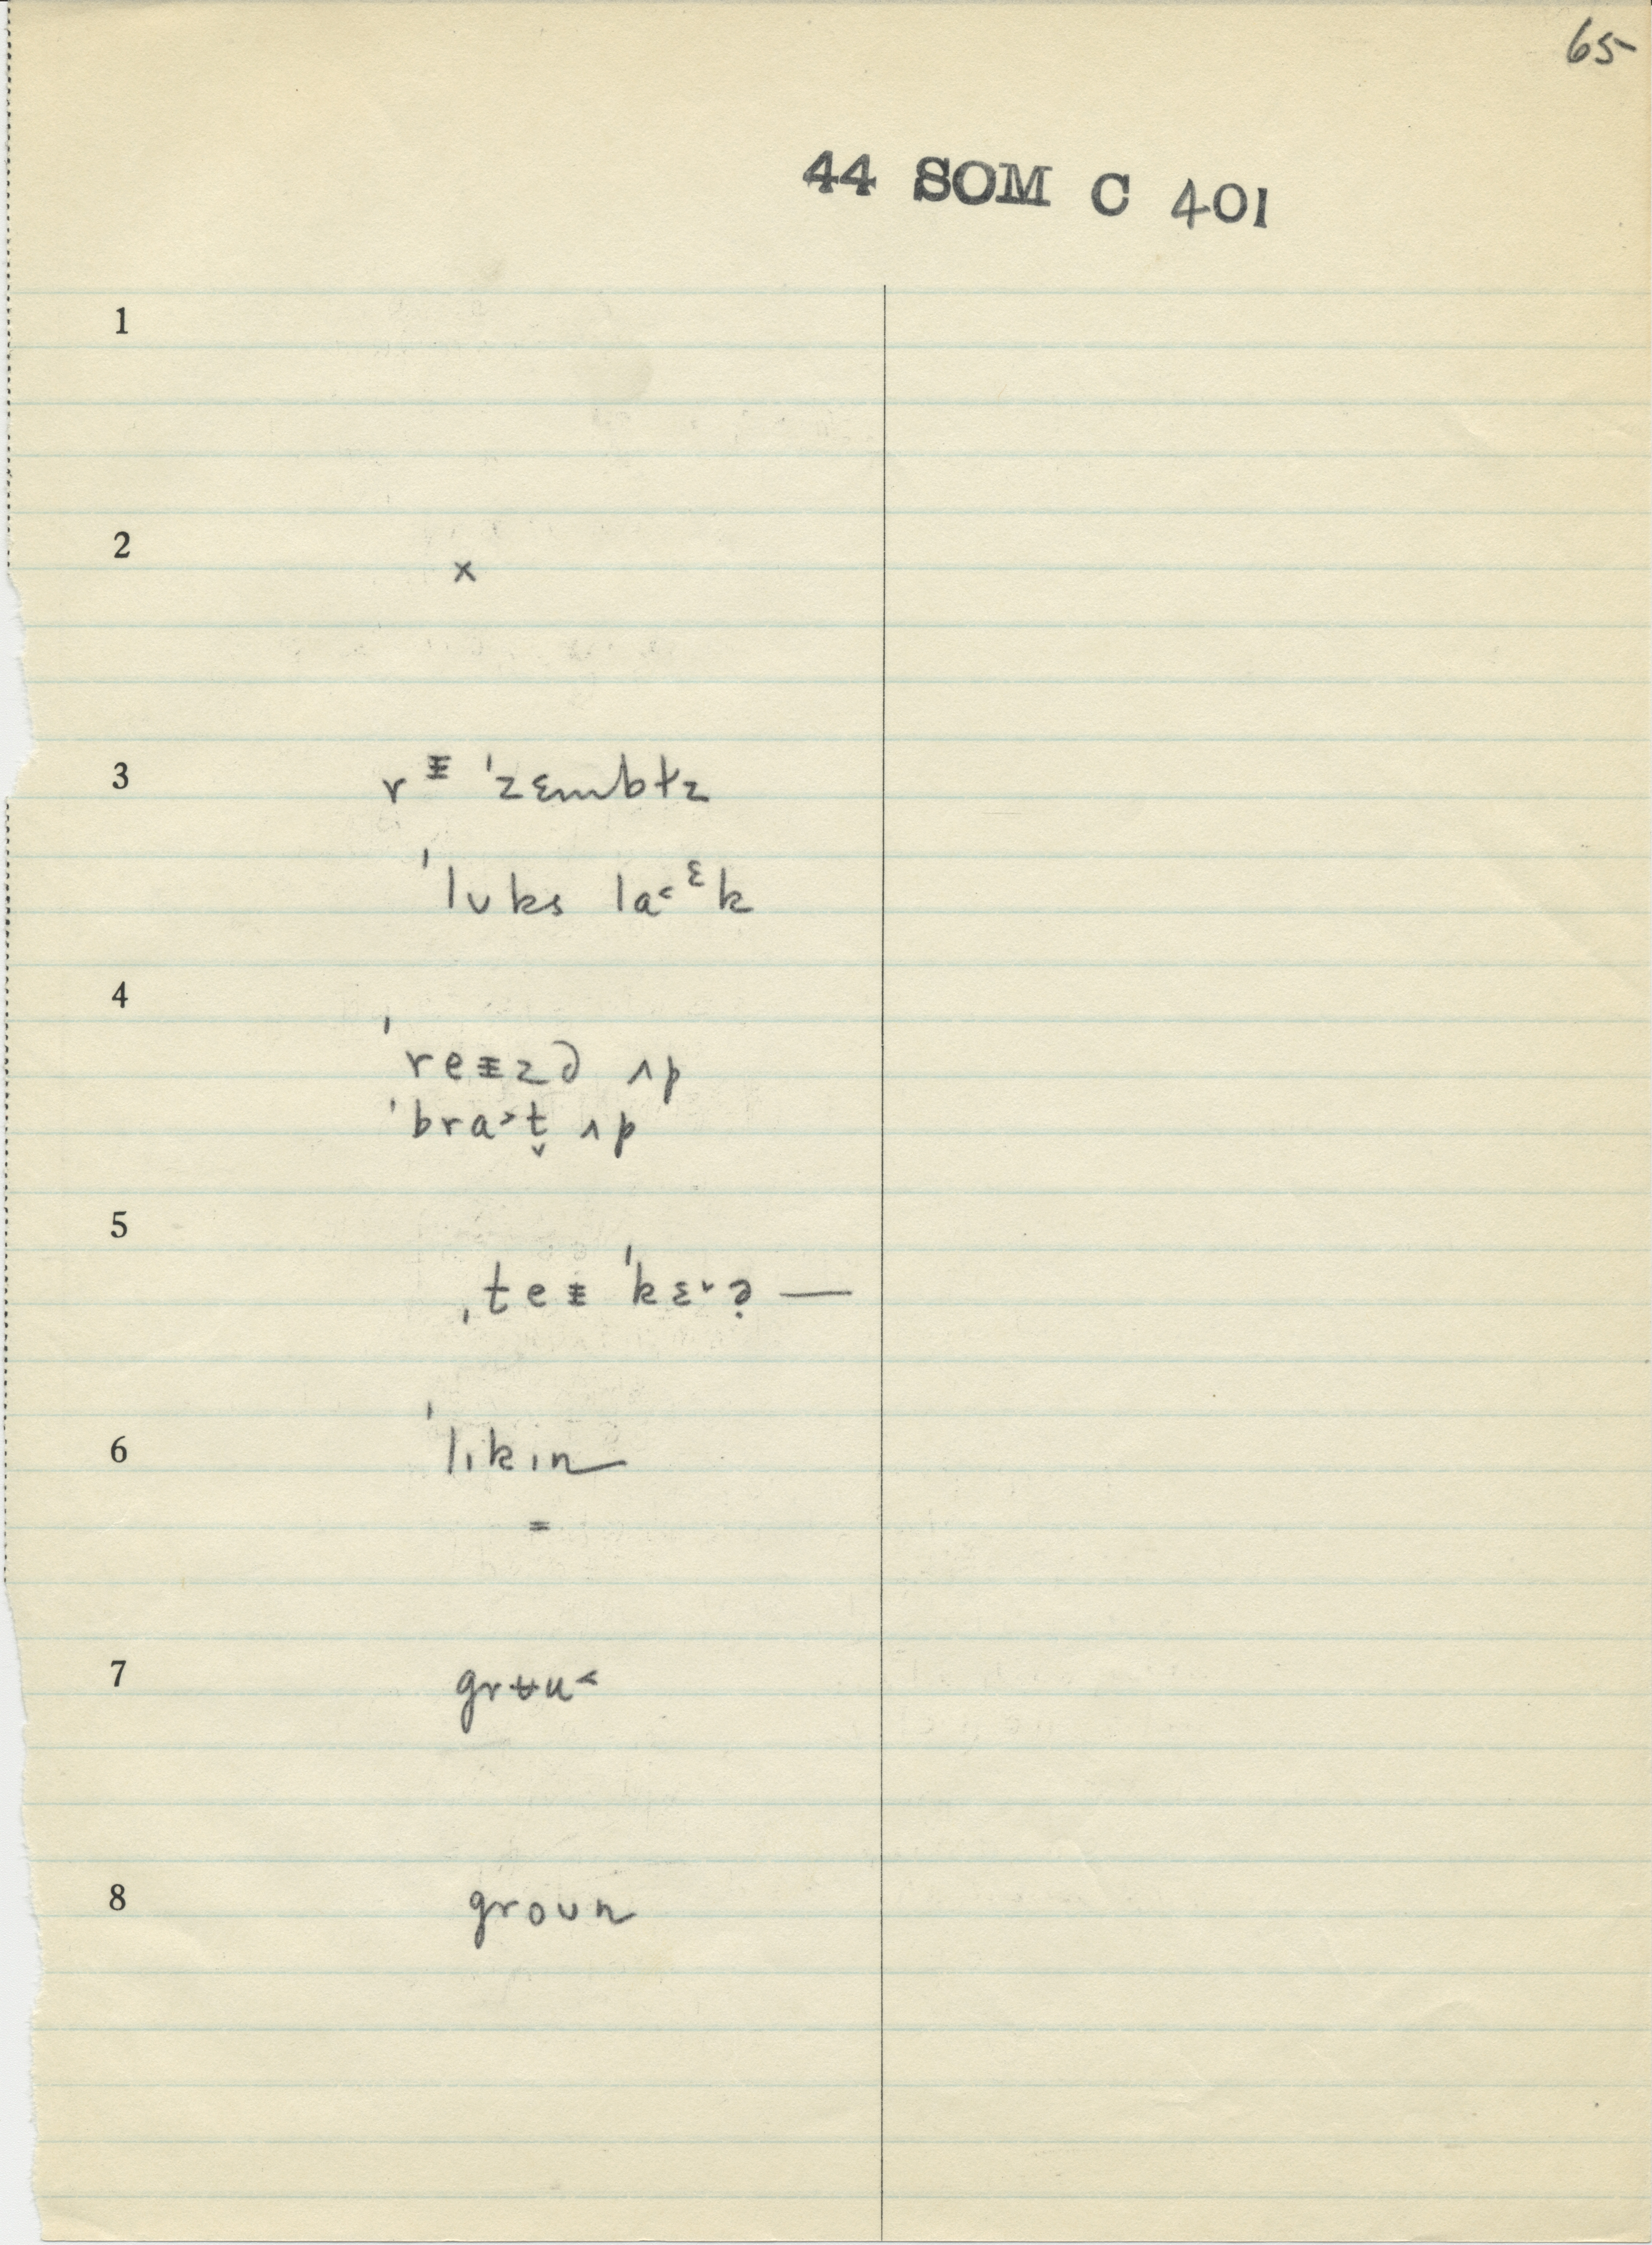 65
44 SOM C 401
1
2
x
3
r ᵻ ˈzɛmbɫz
ˈlʊks la˂ᵋk
4
ˈreᵻz∂ ʌp
ˈbra˃t̬ ʌp
5
ˌteᵻ ˈkɛ˅ə̣ —
6
ˈlɪkɪn
=
7
grʉu˂
8
groʊn